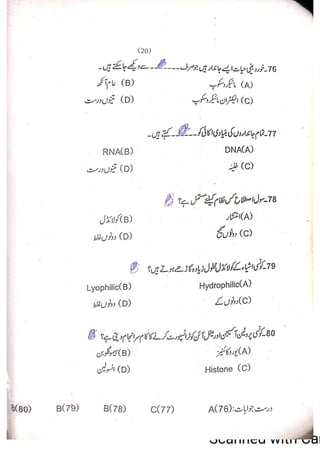 (20)
76- خوردبینی حیات ایسے جاندار ہیں جو صرف ------ سے دیکھے جا سکتے ہیں۔
(A) مائیکروسکوپ (B) عام آنکھ
(C) الیکٹران مائیکروسکوپ (D) تینوں درست
77- تمام جانداروں کی بنیادی اکائی کو ------ کہتے ہیں۔
DNA(A) RNA(B)
(C) خلیہ (D) تینوں درست
78- سول اصطلاح کس نظام کیلئے مستعمل ہے؟
(A) انتشار (B) کولائڈل
(C) دونوں صحیح (D) دونوں غلط
79- کونسی اشیاء کے کولائڈل محلول زیادہ گاڑھے ہوتے ہیں؟
Hydrophilic(A) Lyophilic(B)
(C) دونوں کے (D) دونوں غلط
80- کونسی پروٹین آکسیجن اور میٹل آئن کو ٹرانسپورٹ کرنے کا کام سرانجام دیتی ہے؟
(A) یوروکائنیز (B) ہیموگلوبن
Histone (C) (D) انسولین
درست جوابات: A(76) C(77) B(78) B(79) B(80)
Scanned with Ca